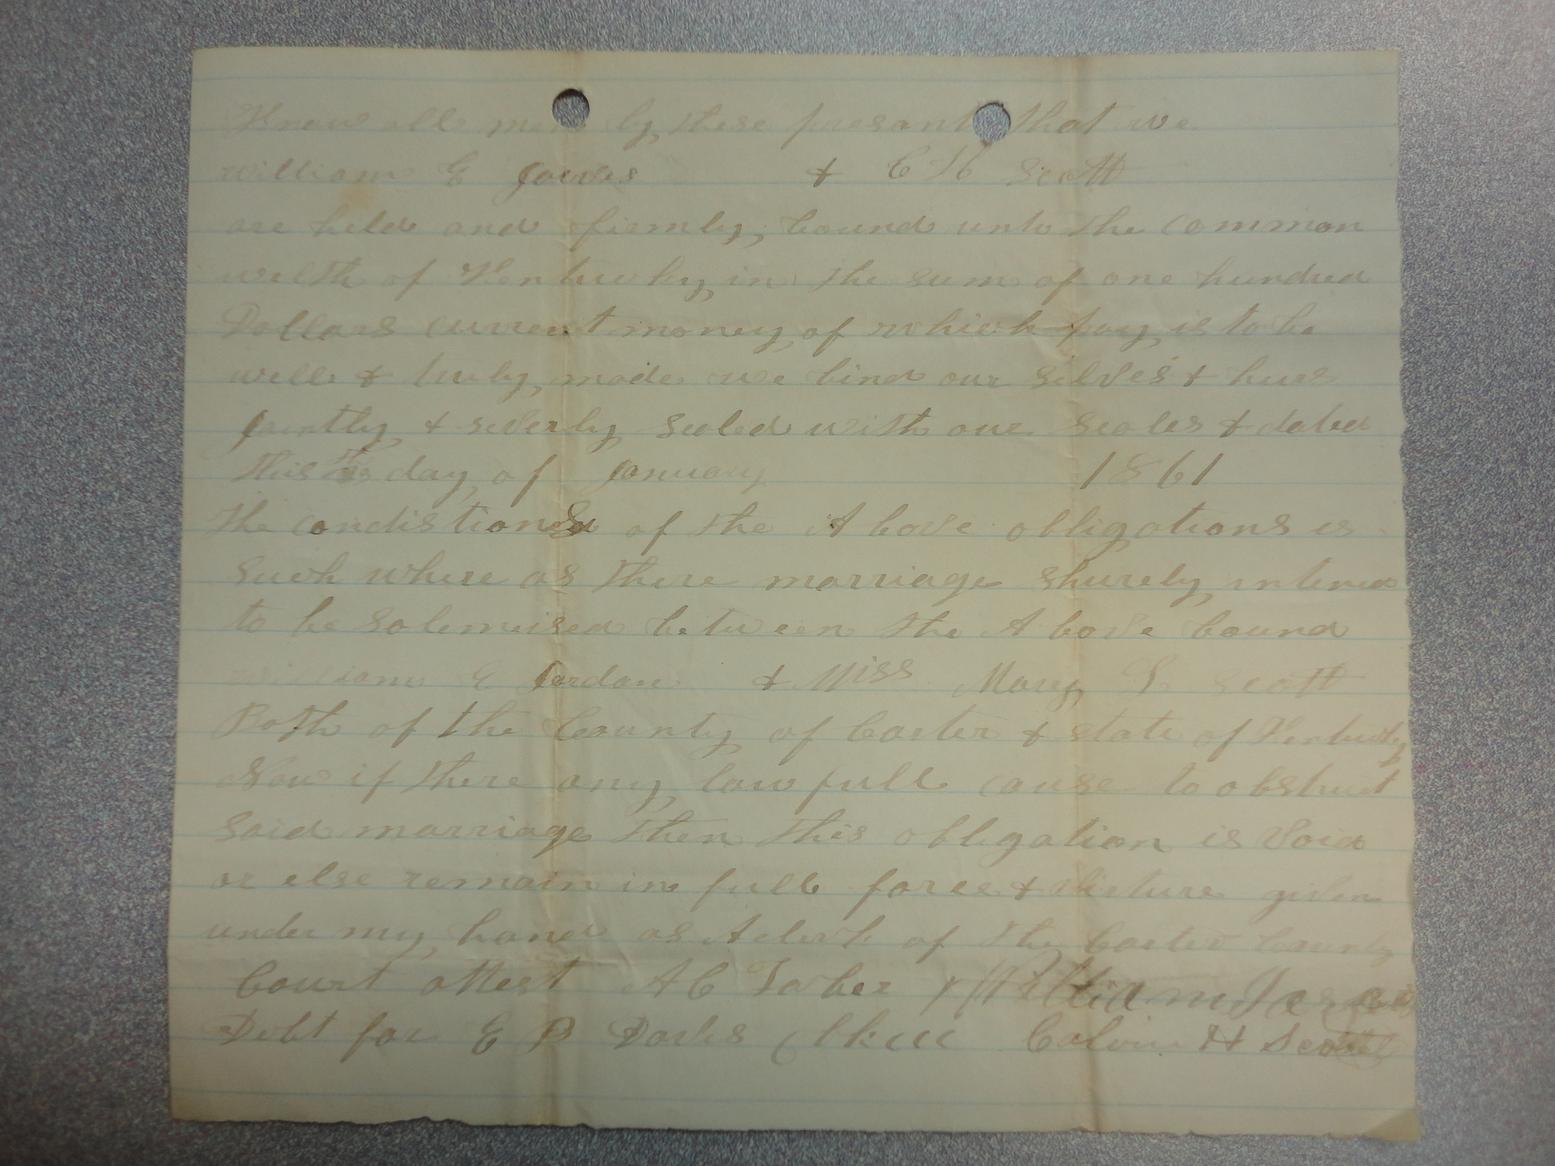 Know all men by these presant that we
William E & C H Scott
are held and firmly bound unto the common
welth of Kentucky in the sum of one hundred
Dollars current money of which pay is to be
well & truly made we bind our selves & hurs
jointly & severly seled with our seales & dated
this day of January 1861
The condistions of the Above obligations is
such where as there marriage shurely intened
to be solemnised between the Above bound
William E & Miss Mary Scott
Both of the County of Carter & state of Kentucky
Now if there any law full cause to obstruct
said marriage then this obligation is void
or else remain in full force & given
under my hand as A clerk of the Carter County
Court attest A C William
Debt for E B Calvin H Scott